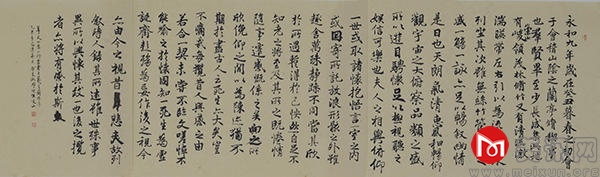 永和九年歲在癸丑暮春之初會
于會稽山陰之蘭亭脩禊事
也羣賢畢至少長咸集此地
有峻領茂林脩竹又有清流激
湍暎帶左右引以為流觴曲水
列坐其次雖無絲竹管弦之
盛一觴一詠亦足以暢敘幽情
是日也天朗氣清惠風和暢仰
觀宇宙之大俯察品類之盛
所以遊目騁懷足以極視聽之
娛信可樂也夫人之相與俯仰
一世或取諸懷抱悟言一室之內
或因寄所託放浪形骸之外雖
趣舍萬殊靜躁不同當其欣
於所遇暫得於己怏然自足不
知老之將至及其所之既惓情
隨事遷感慨係之矣向之所
欣俛仰之間以為陳迹猶不
能不以之興懷況脩短隨化終
期於盡古人云死生亦大矣豈
不痛哉每攬昔人興感之由
若合一契未嘗不臨文嗟悼不
能喻之於懷固知一死生為虛誕
齊彭殤為妄作後之視今
亦由今之視昔悲夫故列
敘時人錄其所述雖世殊事
異所以興懷其致一也後之攬
者亦將有感於斯文
www.meixun.org